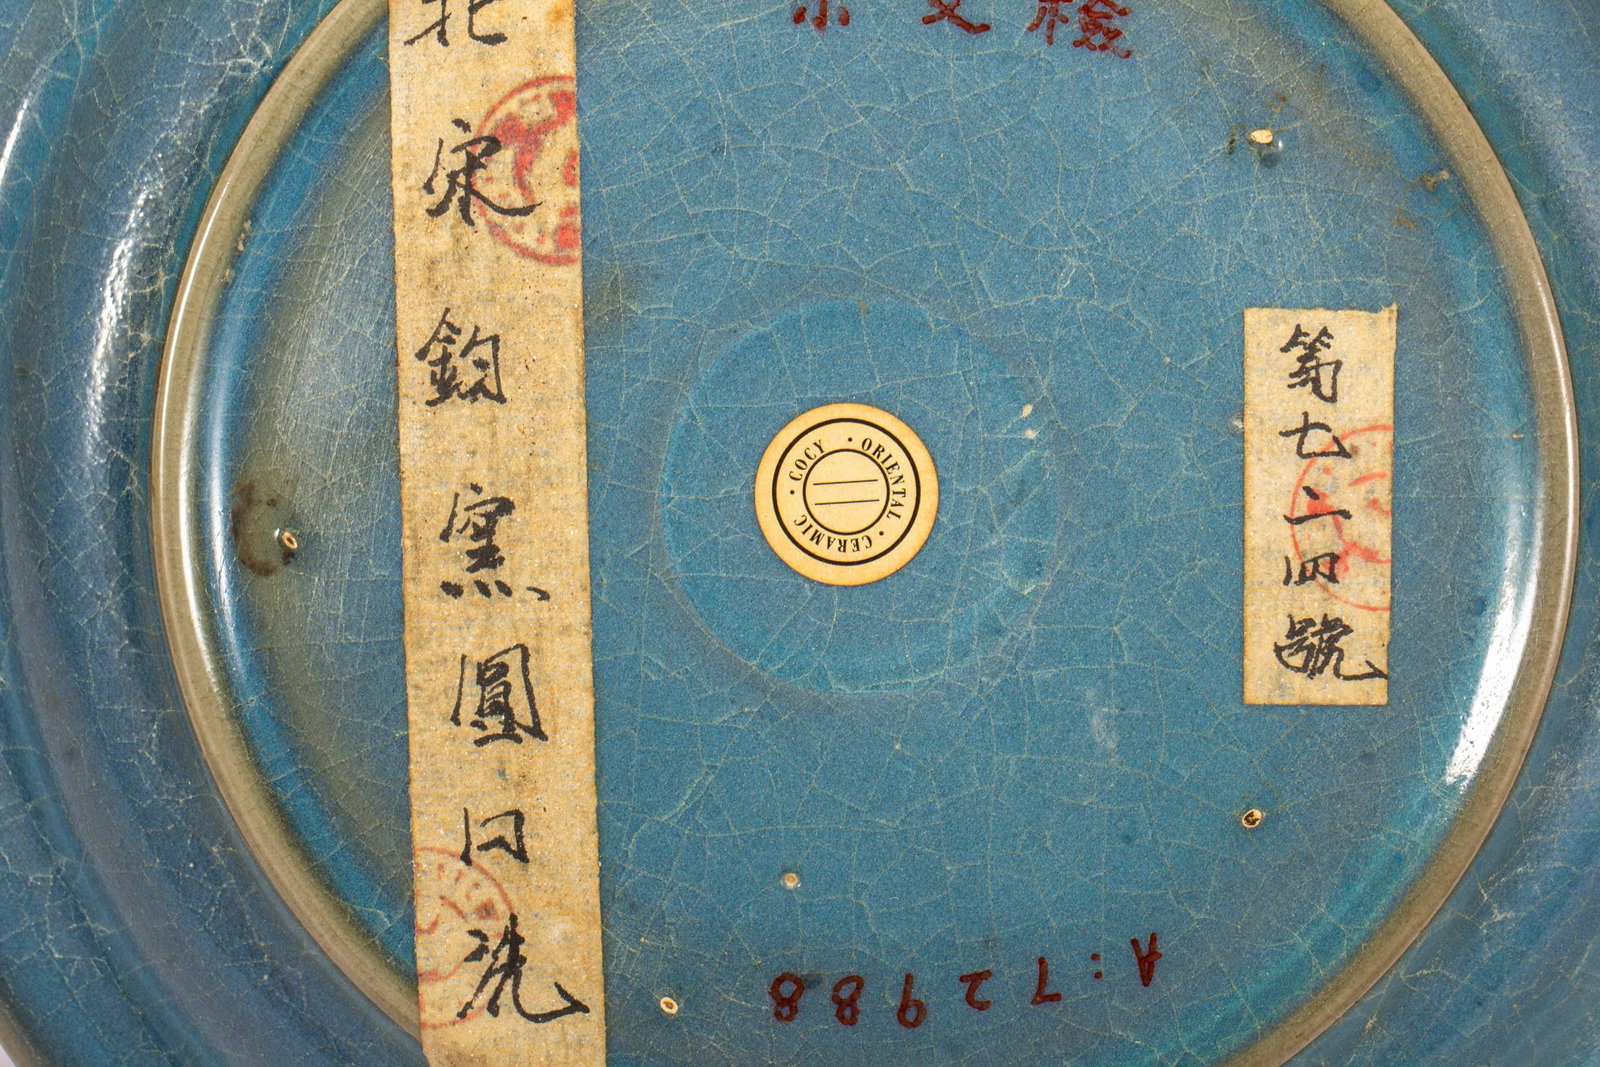 檢文
北宋鈞窯圓口洗
COCY · ORIENTAL · CERAMIC ·
第七二四號
A:72988